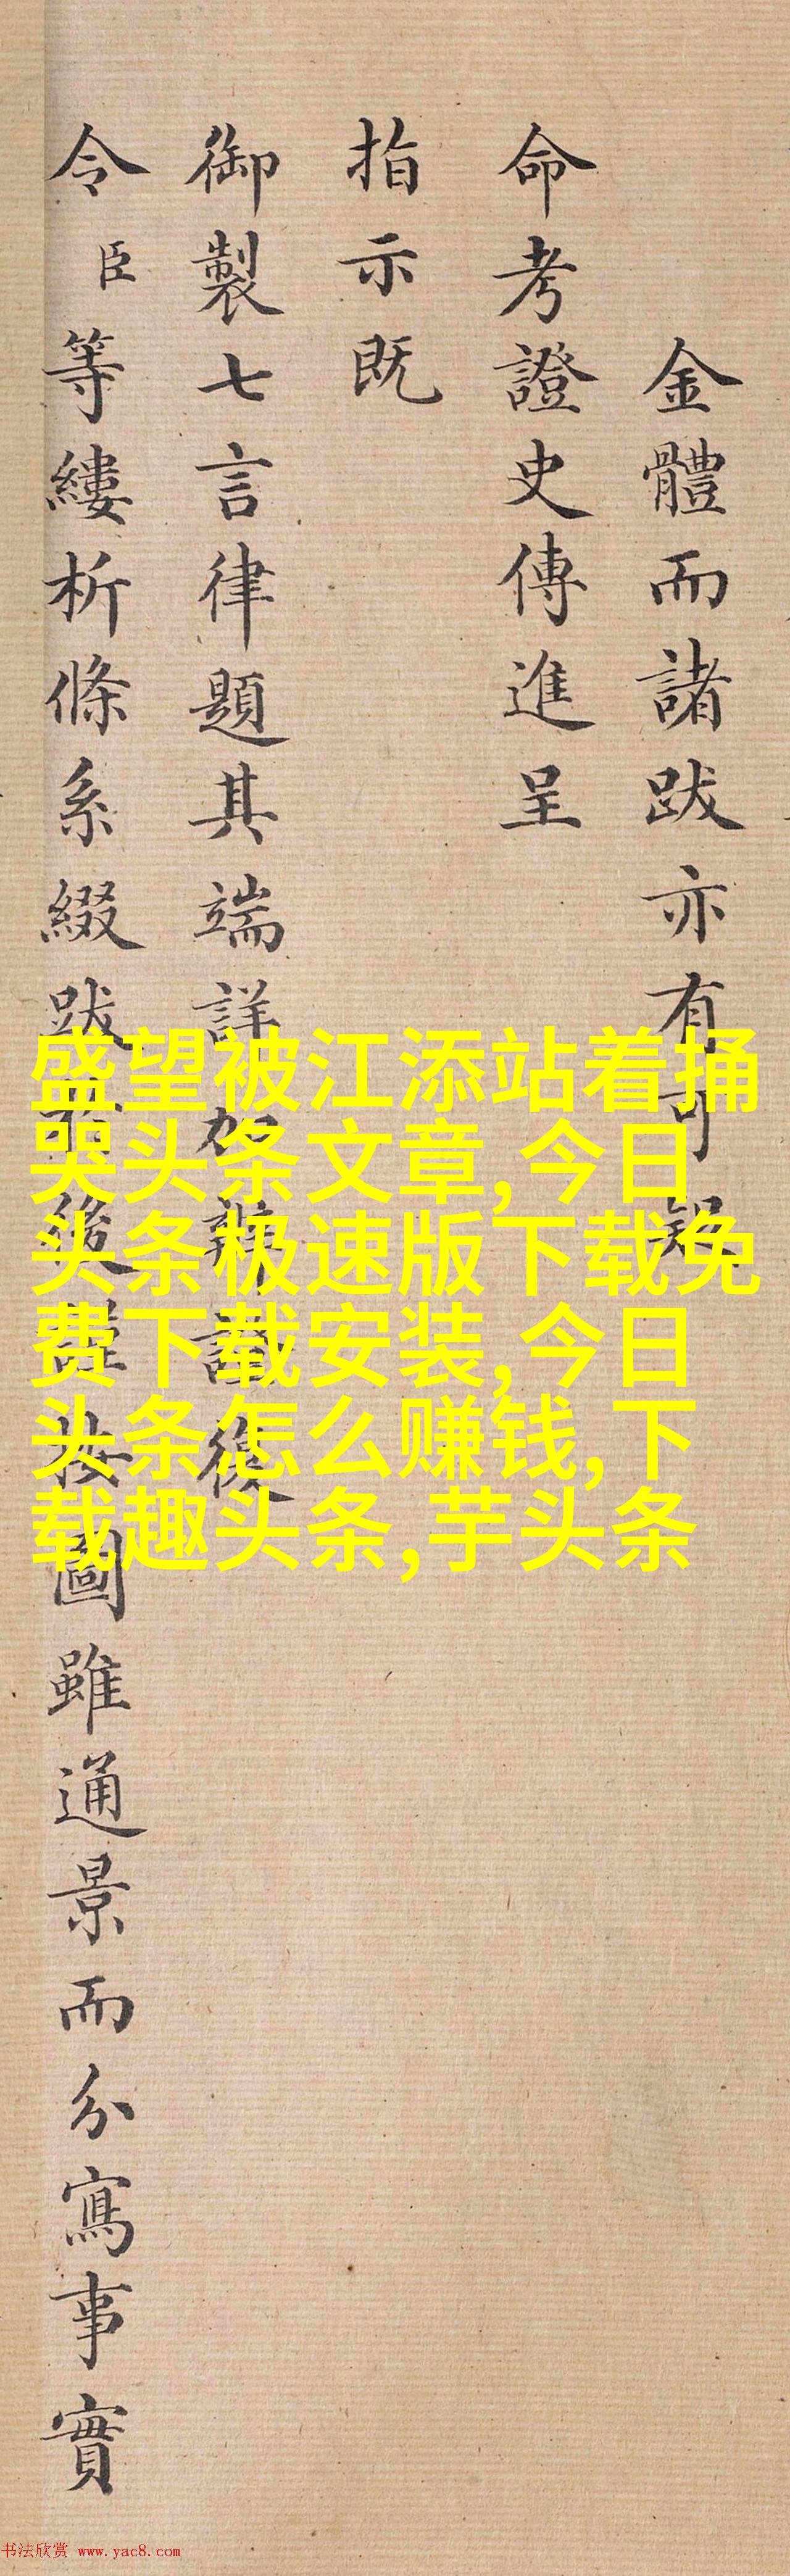 金體而諸跋亦有可
命考證史傳進呈
指示既
御製七言律題其端詳加復
令臣等縷析條系綴跋後謹按圖雖通景而分寫事實
盛望被江添站着捅
哭头条文章,今日
头条极速版下载免
费下载安装,今日
头条怎么赚钱,下
载趣头条,芋头条
书法欣赏 www.yac8.com